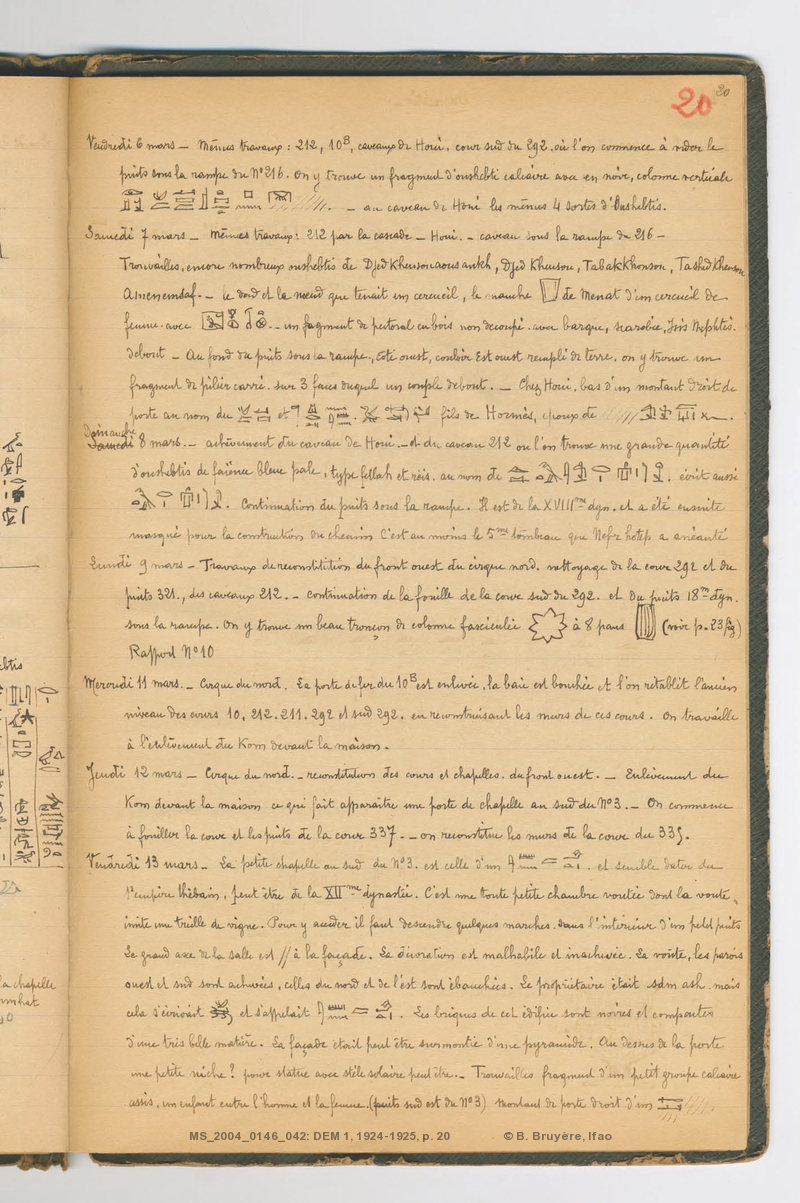 20 20
Vendredi 6 mars — Mêmes travaux : 212, 10B, caveaux de Houi, cour sud du 292, où l'on commence à vider le
puits sous la rampe du N°216. On y trouve un fragment d'oushebti calcaire avec en noir, colonne verticale
— au caveau de Houi les mêmes 4 sortes d'Oushebtis.
Samedi 7 mars — Mêmes travaux : 212 par la cascade — Houi. — caveau sous la rampe du 216 —
Trouvailles, encore nombreux oushebtis de Djed Khensouaous ankh, Djed Khensou, Tabakkhonson, Tashed Khonsou
Amenemsaf. — le doigt et le nœud que tenait un cercueil, le manche de Menat d'un cercueil de
femme avec — un fragment de pectoral en bois non découpé avec barque, scarabée, Isis Nephtis.
debout — Au fond du puits sous la rampe, côté ouest, couloir Est ouest rempli de terre, on y trouve un
fragment de pilier carré sur 3 faces duquel un couple debout. — Chez Houi, bas d'un montant droit de
porte au nom du et fils de Hormès, époux de
Dimanche
Samedi 8 mars. — achèvement du caveau de Houi — et du caveau 212 où l'on trouve une grande quantité
d'oushebtis de faïence bleue pale, type fellah et réis. au nom de écrit aussi
Continuation du puits sous la rampe. Il est de la XVIIIme dyn. et a été ensuite
masqué pour la construction du chemin C'est au moins le 5me tombeau que Nefer hotep a anéanti
Lundi 9 mars — Travaux de reconstitution du front ouest du cirque nord. nettoyage de la cour 292 et du
puits 321, des caveaux 212. — continuation de la fouille de la cour sud du 292. et du puits 18me dyn.
sous la rampe. On y trouve un beau tronçon de colonne fasciculée à 8 pans (voir p. 23 fig)
Rapport N°10
Mercredi 11 mars. — Cirque du nord. La porte de fer du 10B est enlevée, la baie est bouchée et l'on rétablit l'ancien
niveau des cours 10, 212. 211. 292 et sud 292. en reconstruisant les murs de ces cours. On travaille
à l'enlèvement du Kom devant la maison.
Jeudi 12 mars — Cirque du nord. — reconstitution des cours et chapelles du front ouest. — Enlèvement du
Kom devant la maison ce qui fait apparaître une porte de chapelle au sud du N°3. — On commence
à fouiller la cour et les puits de la cour 337. — on reconstitue les murs de la cour du 335.
Vendredi 13 mars — La petite chapelle au sud du N°3. est celle d'un et semble dater du
1er empire thébain, peut être de la XIIme dynastie. C'est une toute petite chambre voutée dont la voute
imite une treille de vigne. Pour y accéder il faut descendre quelques marches dans l'intérieur d'un petit puits
Le grand axe de la salle est // à la façade. La décoration est malhabile et inachevée. La voûte, les parois
ouest et sud sont achevées, celles du nord et de l'est sont ébauchées. Le propriétaire était sdm ash mais
cela s'écrivait et s'appelait Les briques de cet édifice sont noires et compactes
d'une très belle matière. La façade était peut être surmontée d'une pyramide. Au dessus de la porte
une petite niche ? pour statue avec stèle solaire peut être. — Trouvailles fragment d'un petit groupe calcaire
assis, un enfant entre l'homme et la femme. (puits sud est du N°3) Montant de porte droit d'un
MS_2004_0146_042: DEM 1, 1924-1925, p. 20 © B. Bruyère, Ifao